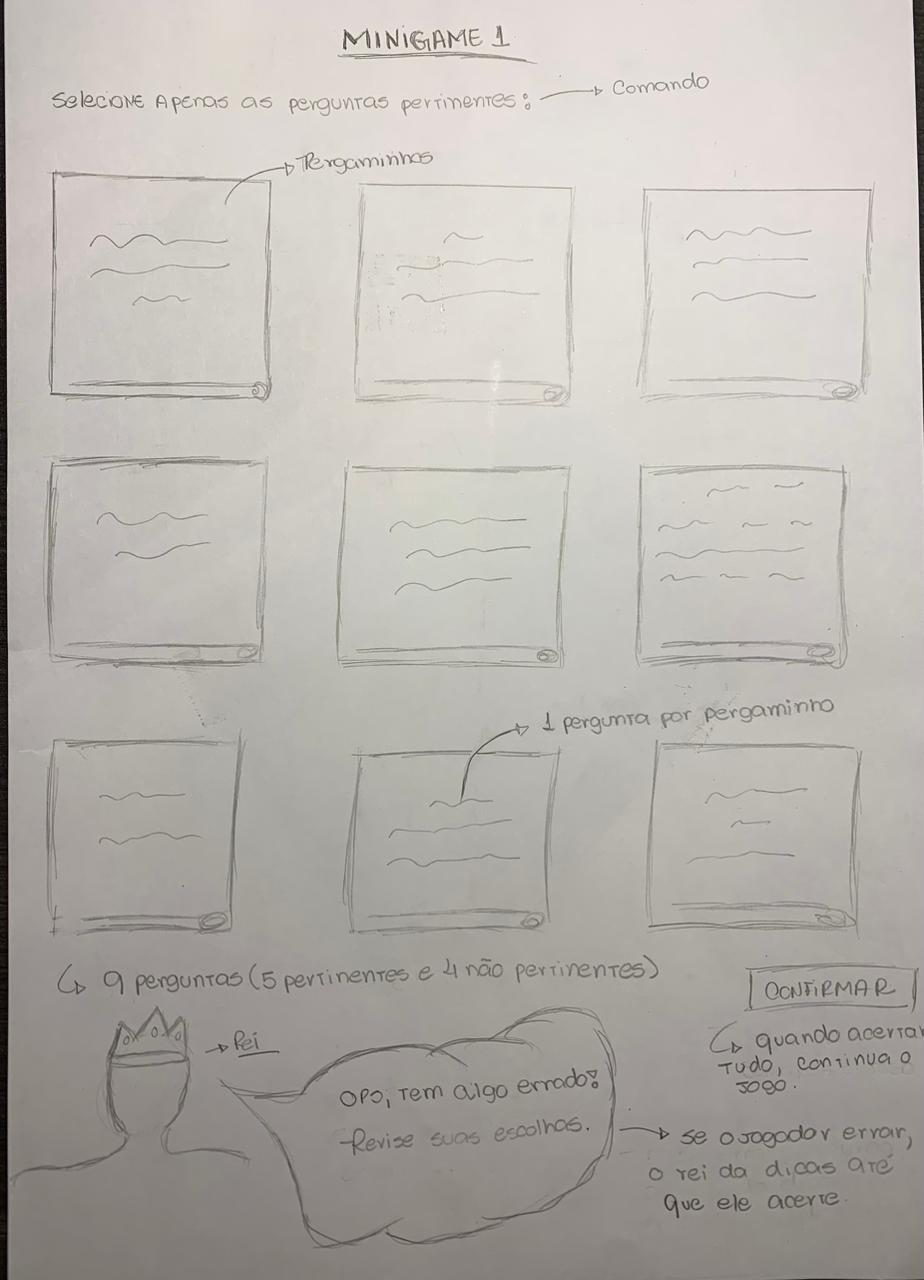 MINIGAME 1
Selecione Apenas as perguntas pertinentes:
Comando
Pergaminhos
1 pergunta por pergaminho
9 perguntas (5 pertinentes e 4 não pertinentes)
CONFIRMAR
Rei
quando acertar
tudo, continua o
jogo.
OPS, tem algo errado!
Revise suas escolhas.
se o jogador errar,
o rei da dicas até
que ele acerte.